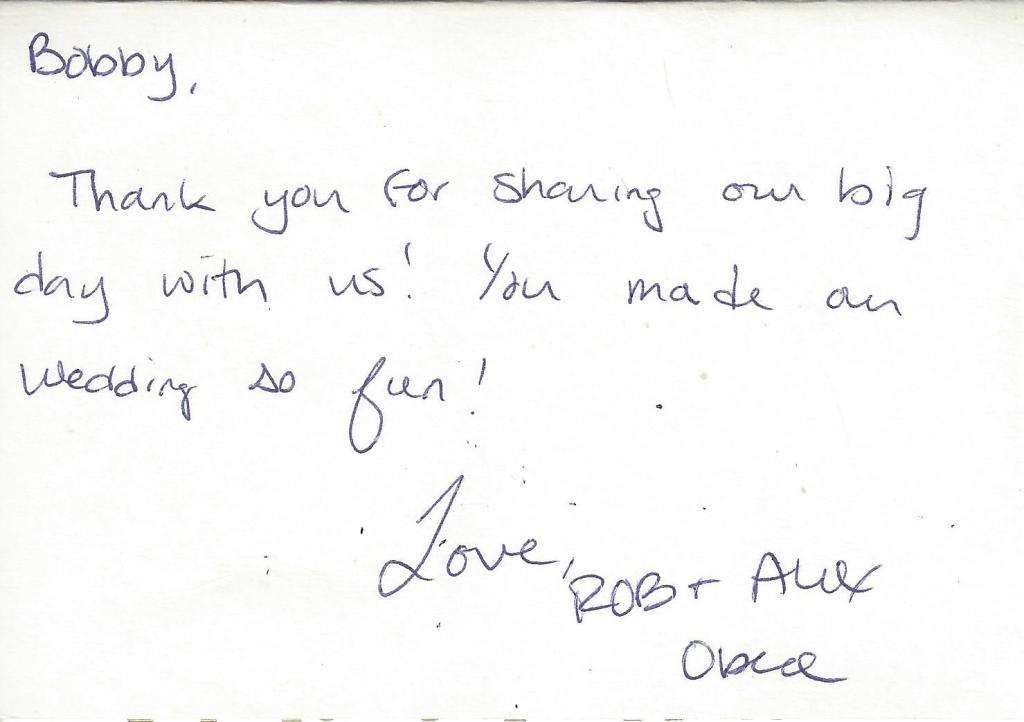 Bobby,
Thank you for sharing our big
day with us! You made our
wedding so fun!
Love,
ROB + Alex